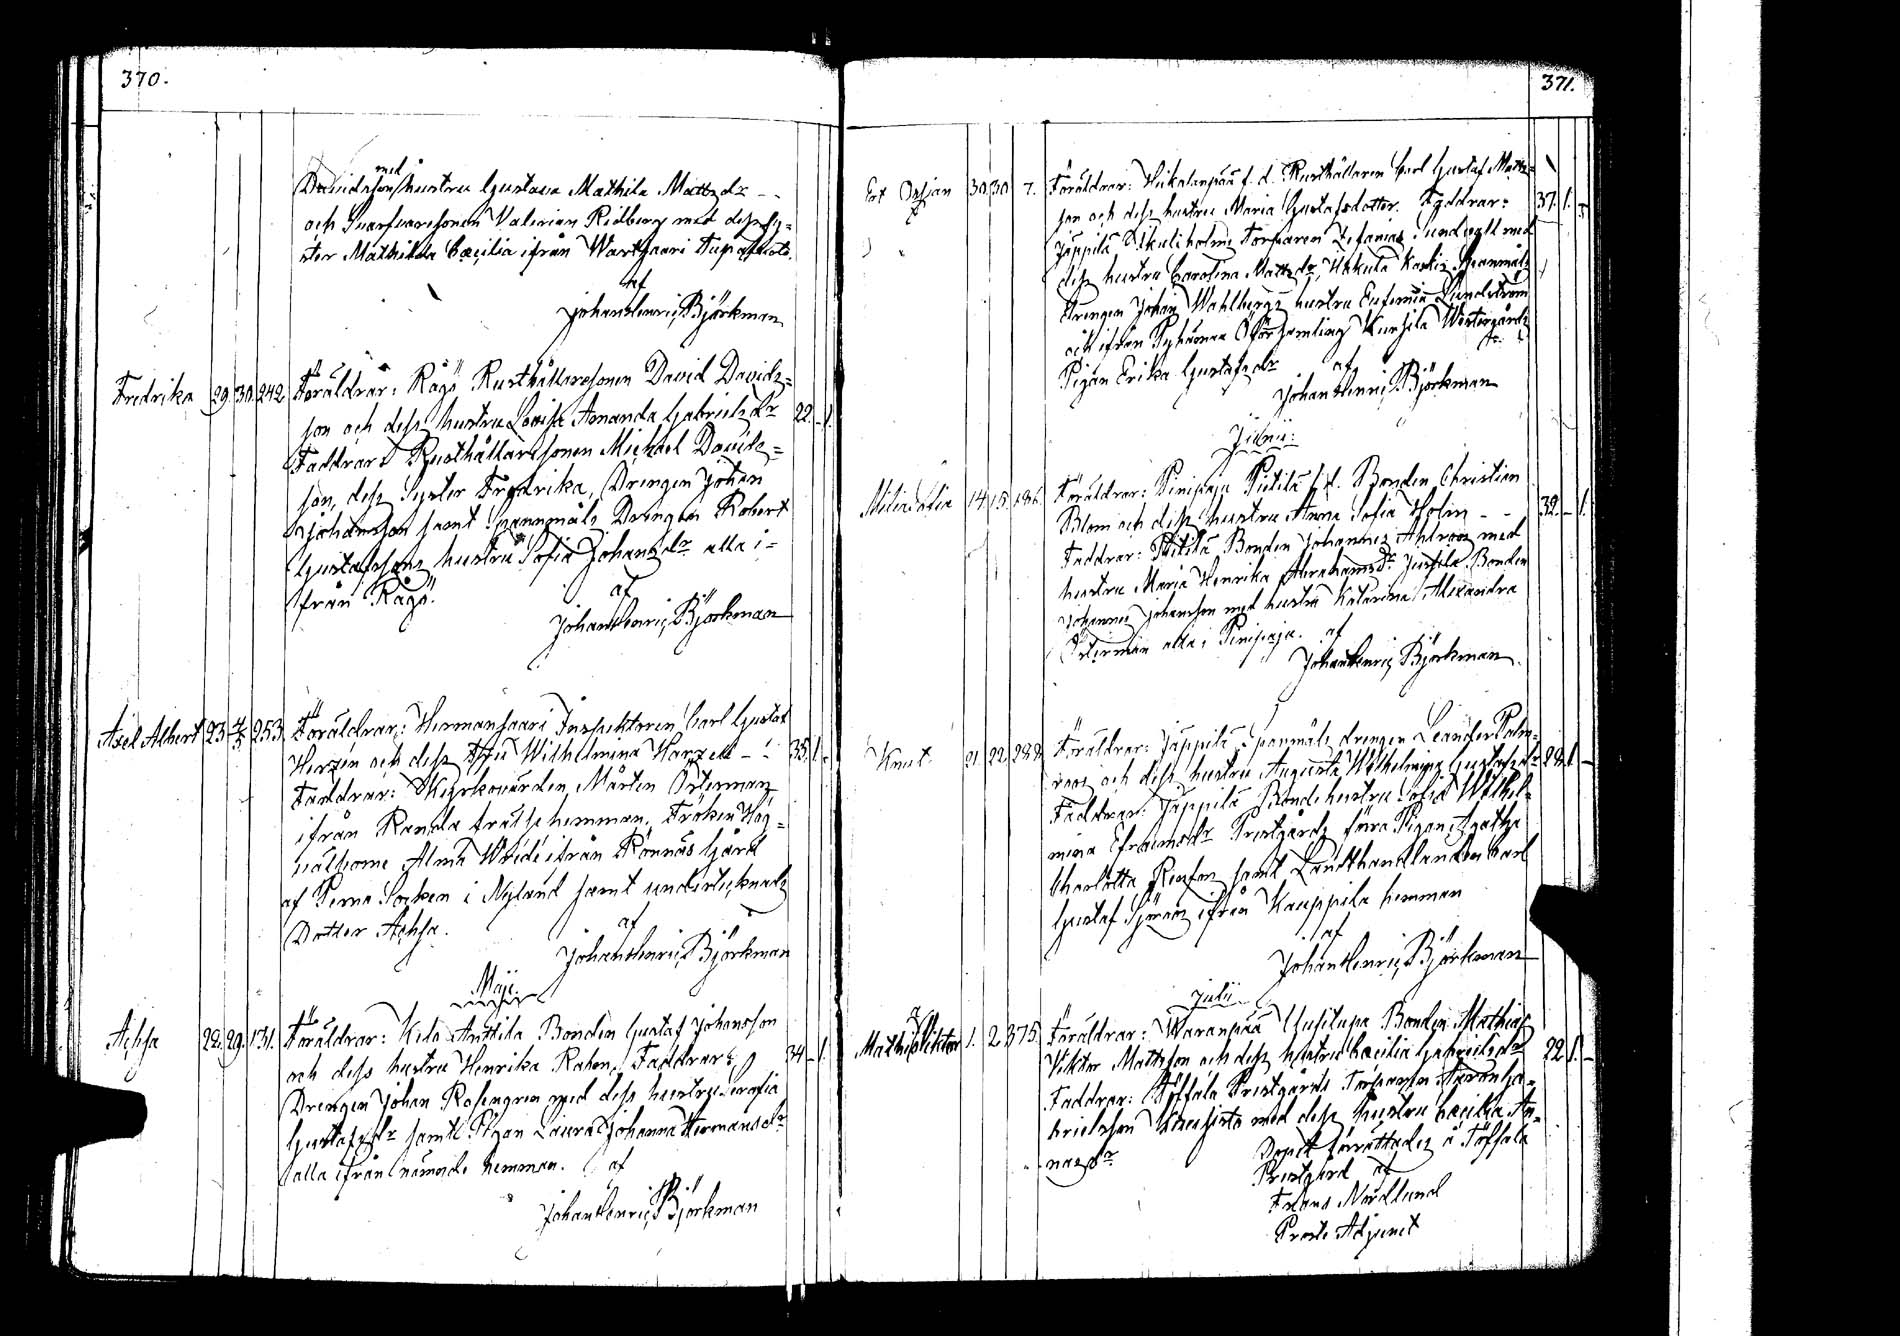 370.
med
Davidsson hustru Gustava Mathilda Mattsdr - -
och Snarfvaresonen Valerian Ridberg med dess sy=
ster Mathilda Cæcilia ifrån Wartsaari
af
Johan Henric Björkman
Fredrika 29. 30. 242 Föräldrar: Rågö Rusthållaresonen David Davids=
son och dess hustru Lovisa Amanda Gabrielsdr 22. - 1.
Faddrar: Rusthållaresonen Michael Davids=
son, dess Syster Fredrika, Drengen Johan
Johansson samt Spannmåls Drengen Robert
Gustafssons hustru Sofia Johansdr alla i=
från Rågö. af
Johan Henric Björkman
Axel Albert 23 4/5 253 Föräldrar: Hermansaari Inspektoren Carl Gustaf
Herzén och dess Fru Wilhelmina Herzén - 35. 1. -
Faddrar: Kyrkovärden Mårten Österman
ifrån Randa frälsehemman, Fröken Hög=
välborne Alma Wrede ifrån Rönnäs Gård
af Perno Socken i Nyland samt undertecknads
Dotter Achsa. af
Johan Henric Björkman
Maji.
Achsa 28. 29. 131. Föräldrar: Kila Anttila Bonden Gustaf Johansson
och dess hustru Henrika Rahen, Faddrar: 34 - 1.
Drengen Johan Rosengren med dess hustru Serafia
Gustafsdr samt Pigan Laura Johanna Hermansdr
alla ifrån nämnde hemman. af
Johan Henric Björkman
371.
Ossian 30. 30 7. Föräldrar: Heikolanpää f. d. Rusthållaren Carl Gustaf Matts=
son och dess hustru Maria Gustafsdotter. Fadrar: 37. 1.
Jäppilä Torparen Zefanias Sundvall med
dess hustru Carolina Mattsdr, Hakula Spanmåls
Drengen Johan Wahlbergs hustru Eufemia Lundström
och ifrån Pyhämaa Öförsamling Kunsila Westergårds
Pigan Erika Gustafsdr af
Johan Henric Björkman
Junii:
Milia Sofia 14. 15. 186. Föräldrar: Pinipaju Pietilä f.d. Bonden Christian
Blom och dess hustru Anna Sofia Holm - - 32. - 1.
Faddrar: Pietilä Bonden Johannes Ahlroos med
hustru Maria Henrika Abrahamsdr Jussila Bonden
Johannes Johansson med hustru Katarina Alexandra
Österman alla i Pinipaju. af
Johan Henric Björkman.
Knut 21 22 288. Föräldrar: Jäppilä Spanmåls drengen Leander Palm=
roos och dess hustru Augusta Wilhelmina Gustafsdr 28. 1. -
Faddrar: Jäppilä Bondehustru Sofia Wilhel=
mina Efraimsdr Prestgårds förra Pigan Agatha
Charlotta samt Landthandlanden Carl
Gustaf Sjöroos ifrån Kauppila hemman
af
Johan Henric Björkman
Julii
Mathias Viktor 1. 2. 375. Föräldrar: Waranpää Uusitupa Bonden Mathias
Viktor Mattsson och dess hustru Cæcilia Gabrielsdr 22 1. -
Faddrar: Töfsala Prestgårds Torparen Ga=
brielsson med dess hustru Cæcilia An=
nasdr Dopet förrättades å Töfsala
Prestgård af
Frans Nordlund
Prosts Adjunct